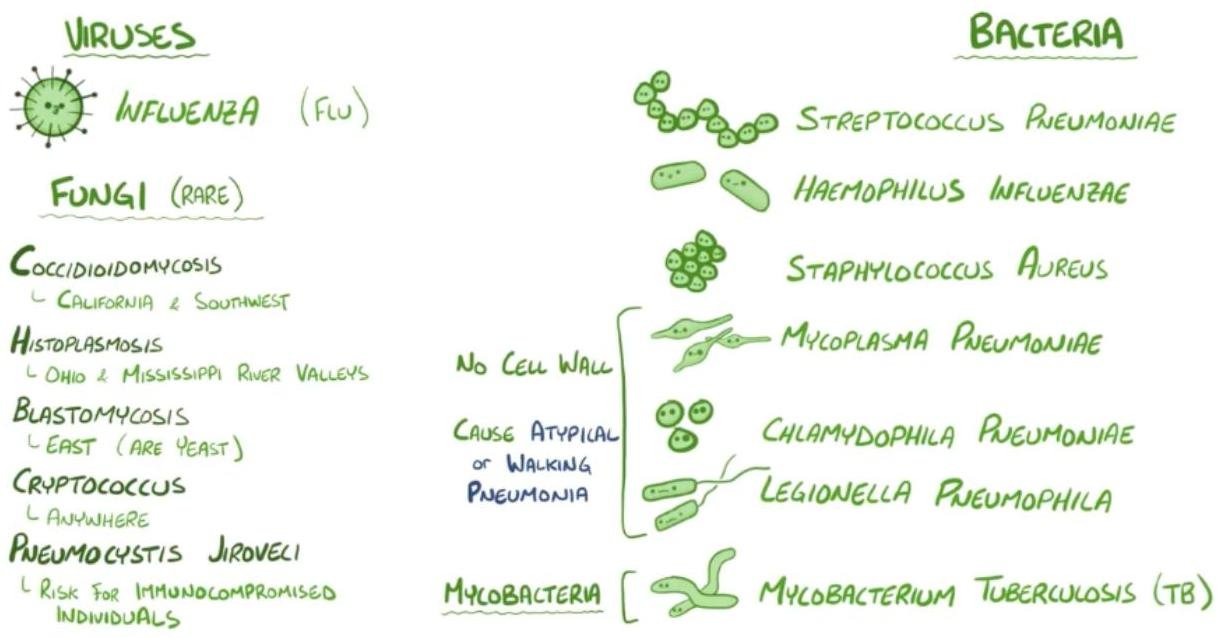 VIRUSES
INFLUENZA (FLU)
FUNGI (RARE)
COCCIDIOIDOMYCOSIS
CALIFORNIA & SOUTHWEST
HISTOPLASMOSIS
OHIO & MISSISSIPPI RIVER VALLEYS
BLASTOMYCOSIS
EAST (ARE YEAST)
CRYPTOCOCCUS
ANYWHERE
PNEUMOCYSTIS JIROVECI
RISK FOR IMMUNOCOMPROMISED
INDIVIDUALS
BACTERIA
STREPTOCOCCUS PNEUMONIAE
HAEMOPHILUS INFLUENZAE
STAPHYLOCOCCUS AUREUS
NO CELL WALL
CAUSE ATYPICAL
or WALKING
PNEUMONIA
MYCOPLASMA PNEUMONIAE
CHLAMYDOPHILA PNEUMONIAE
LEGIONELLA PNEUMOPHILA
MYCOBACTERIA
MYCOBACTERIUM TUBERCULOSIS (TB)